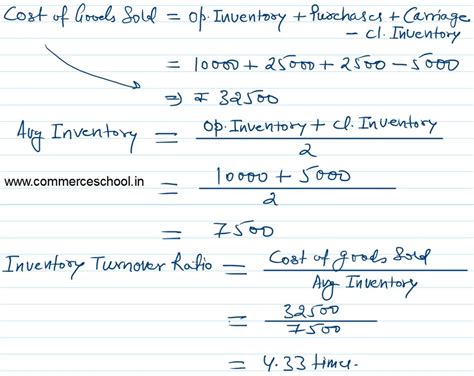 Cost of Goods Sold = Op. Inventory + Purchases + Carriage
- Cl. Inventory
= 10000 + 25000 + 2500 - 5000
⇒ ₹ 32500
Avg Inventory = Op. Inventory + Cl. Inventory
2
www.commerceschool.in
= 10000 + 5000
2
= 7500
Inventory Turnover Ratio = Cost of goods Sold
Avg Inventory
= 32500
7500
= 4.33 times.